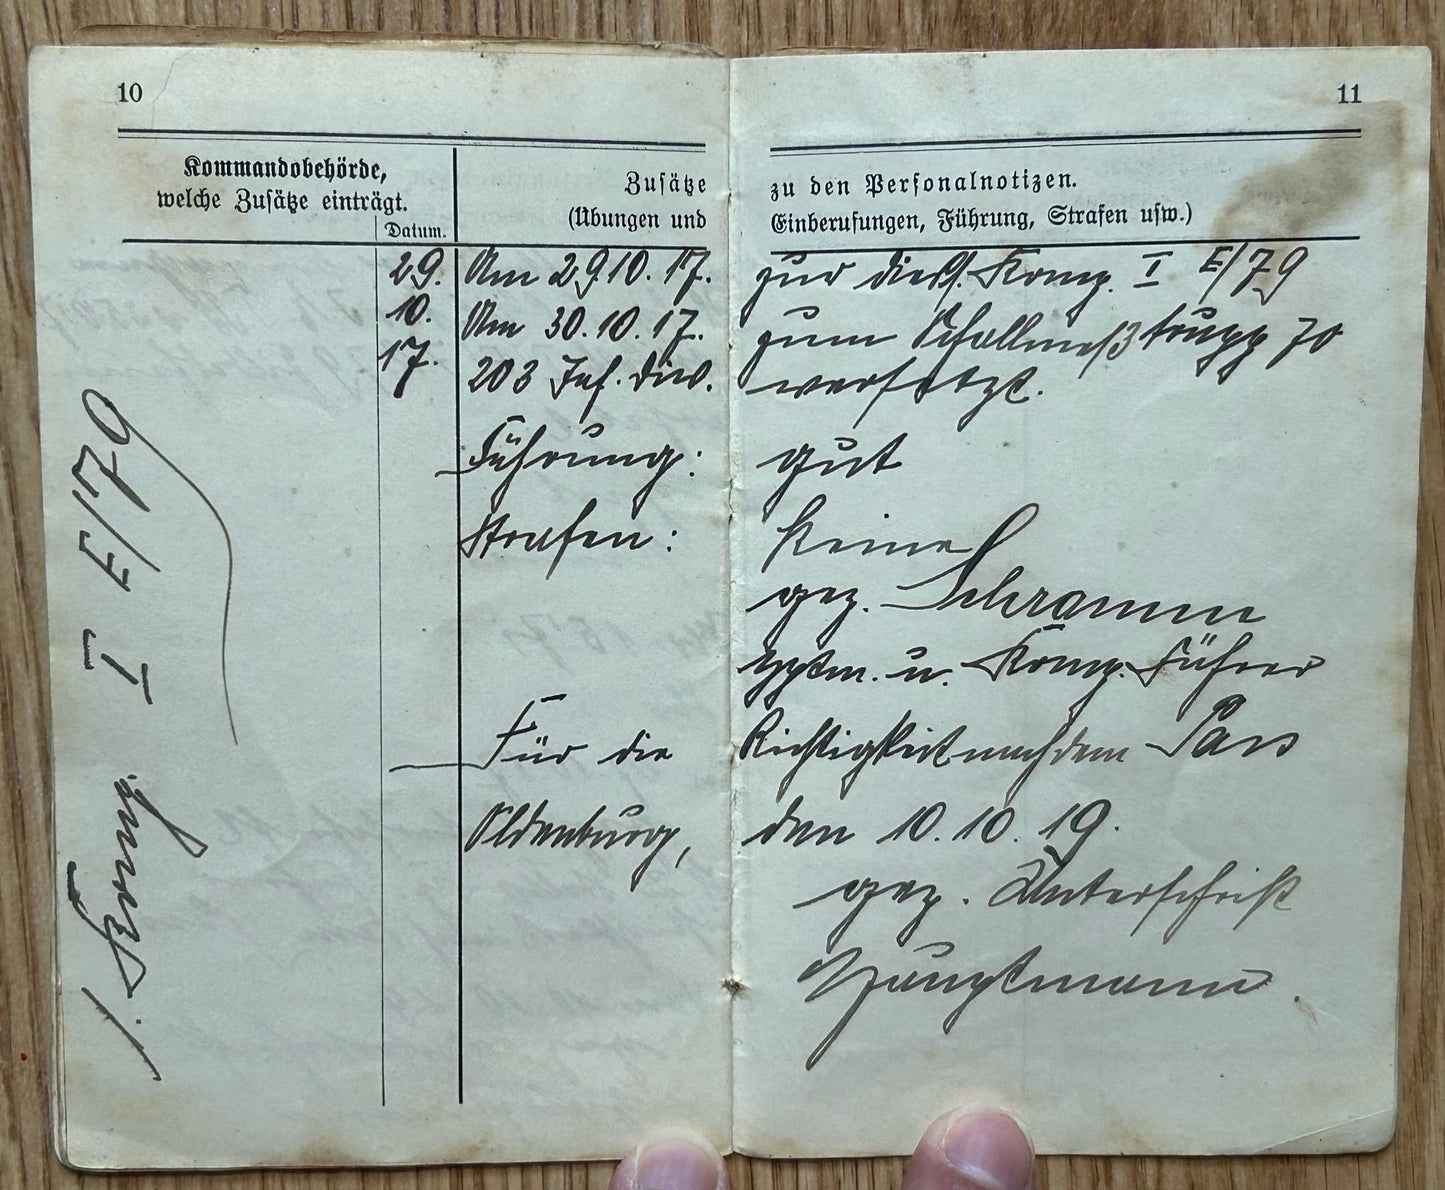 10
Kommandobehörde,
welche Zusätze einträgt.
Datum.
Zusätze
(Übungen und
11
zu den Personalnotizen.
Einberufungen, Führung, Strafen usw.)
1. Komp. I E/79
29. Am 29.10.17. zur Komp. I E/79
10. Am 30.10.17. zum Schallmeßtrupp 70
17. 203 Inf. Div. versetzt.
Führung: gut
Strafen: keine
gez. Schramm
Hptm. u. Komp. Führer
Für die Richtigkeit nach dem Pass
Oldenburg, den 10.10.19.
gez. Unterschrift
Hauptmann.